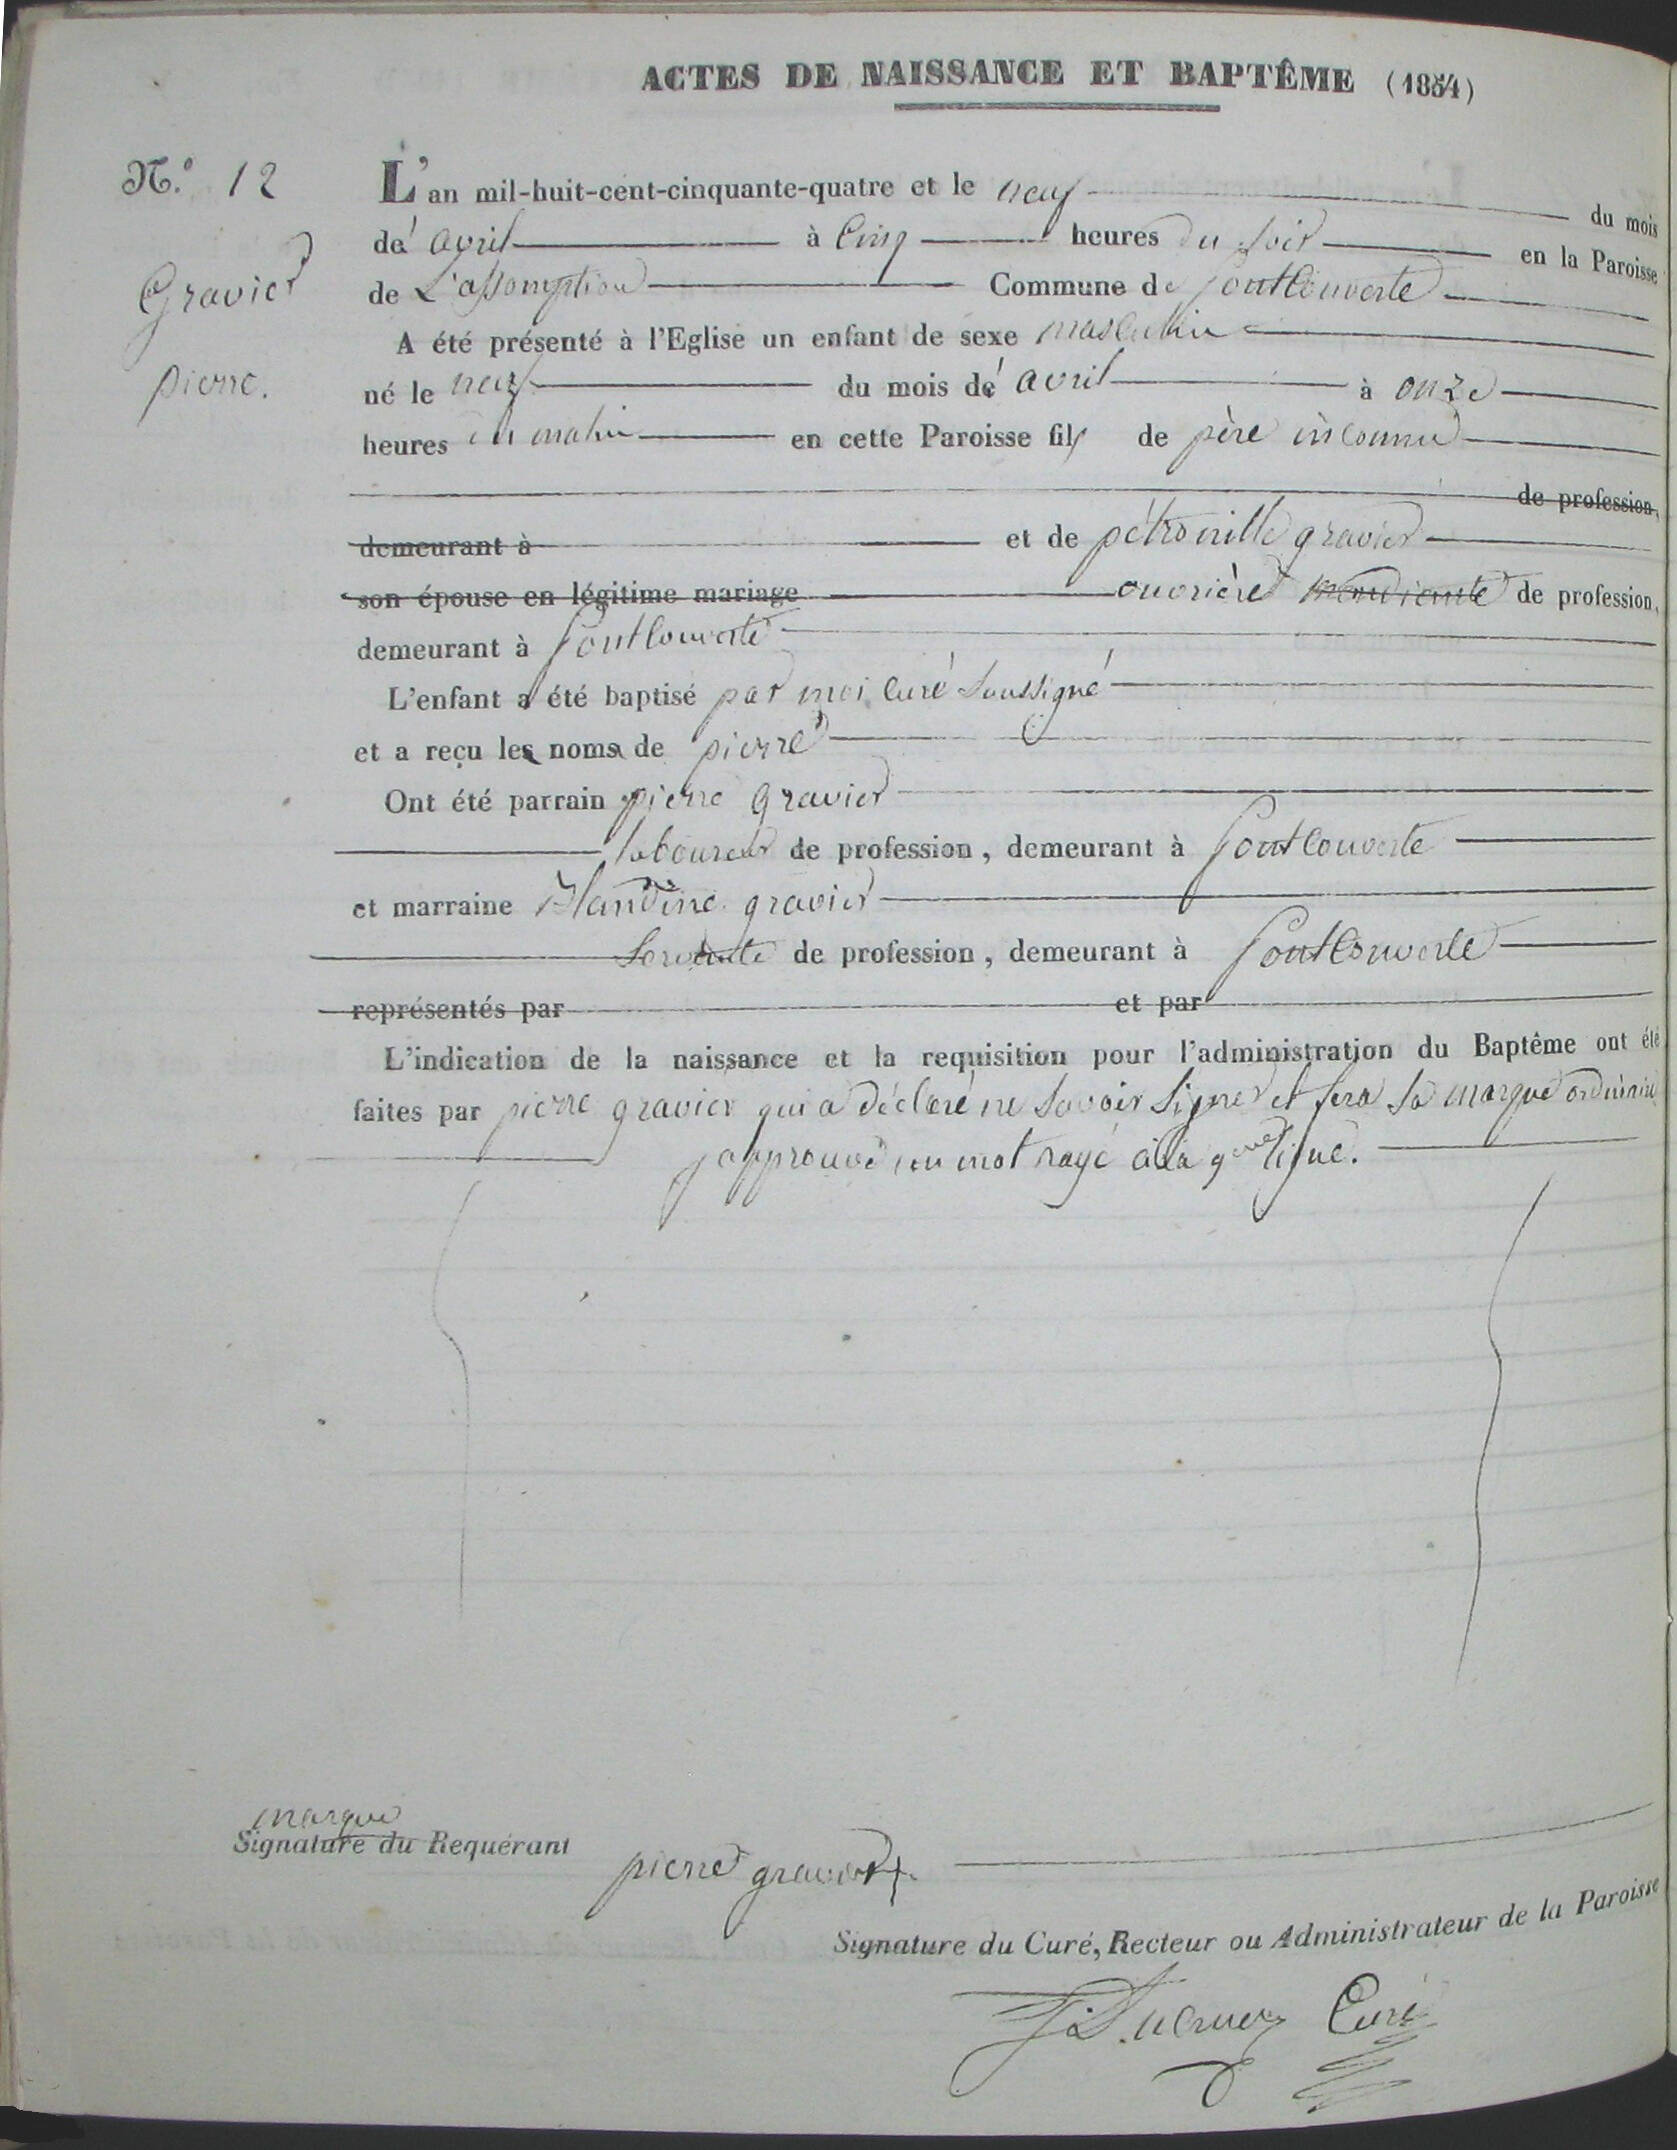 ACTES DE NAISSANCE ET BAPTÊME (1854)
N.º 12
L'an mil-huit-cent-cinquante-quatre et le neuf du mois
de avril à cinq heures du soir en la Paroisse
Gravier
de L'assomption Commune de fontcouverte
A été présenté à l'Eglise un enfant de sexe masculin
pierre.
né le neuf du mois de avril à onze
heures du matin en cette Paroisse fils de père inconnu
de profession,
demeurant à et de pétronille gravier
son épouse en légitime mariage ouvrière mendiante de profession,
demeurant à fontcouverte
L'enfant a été baptisé par moi curé soussigné
et a reçu les noms de pierre
Ont été parrain pierre gravier
laboureur de profession, demeurant à fontcouverte
et marraine Blandine gravier
servante de profession, demeurant à fontcouverte
représentés par et par
L'indication de la naissance et la requisition pour l'administration du Baptême ont été
faites par pierre gravier qui a déclaré ne savoir signer et fera sa marque ordinaire
j'approuve un mot rayé à la 9eme ligne.
marque
Signature du Requérant
pierre gravier +
Signature du Curé, Recteur ou Administrateur de la Paroisse
Curé